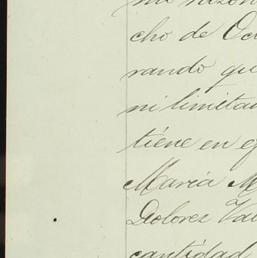 mi razon
cho de Oc
rando qu
ni limita
tiene en e
Maria M
Dolores Va
cantidad